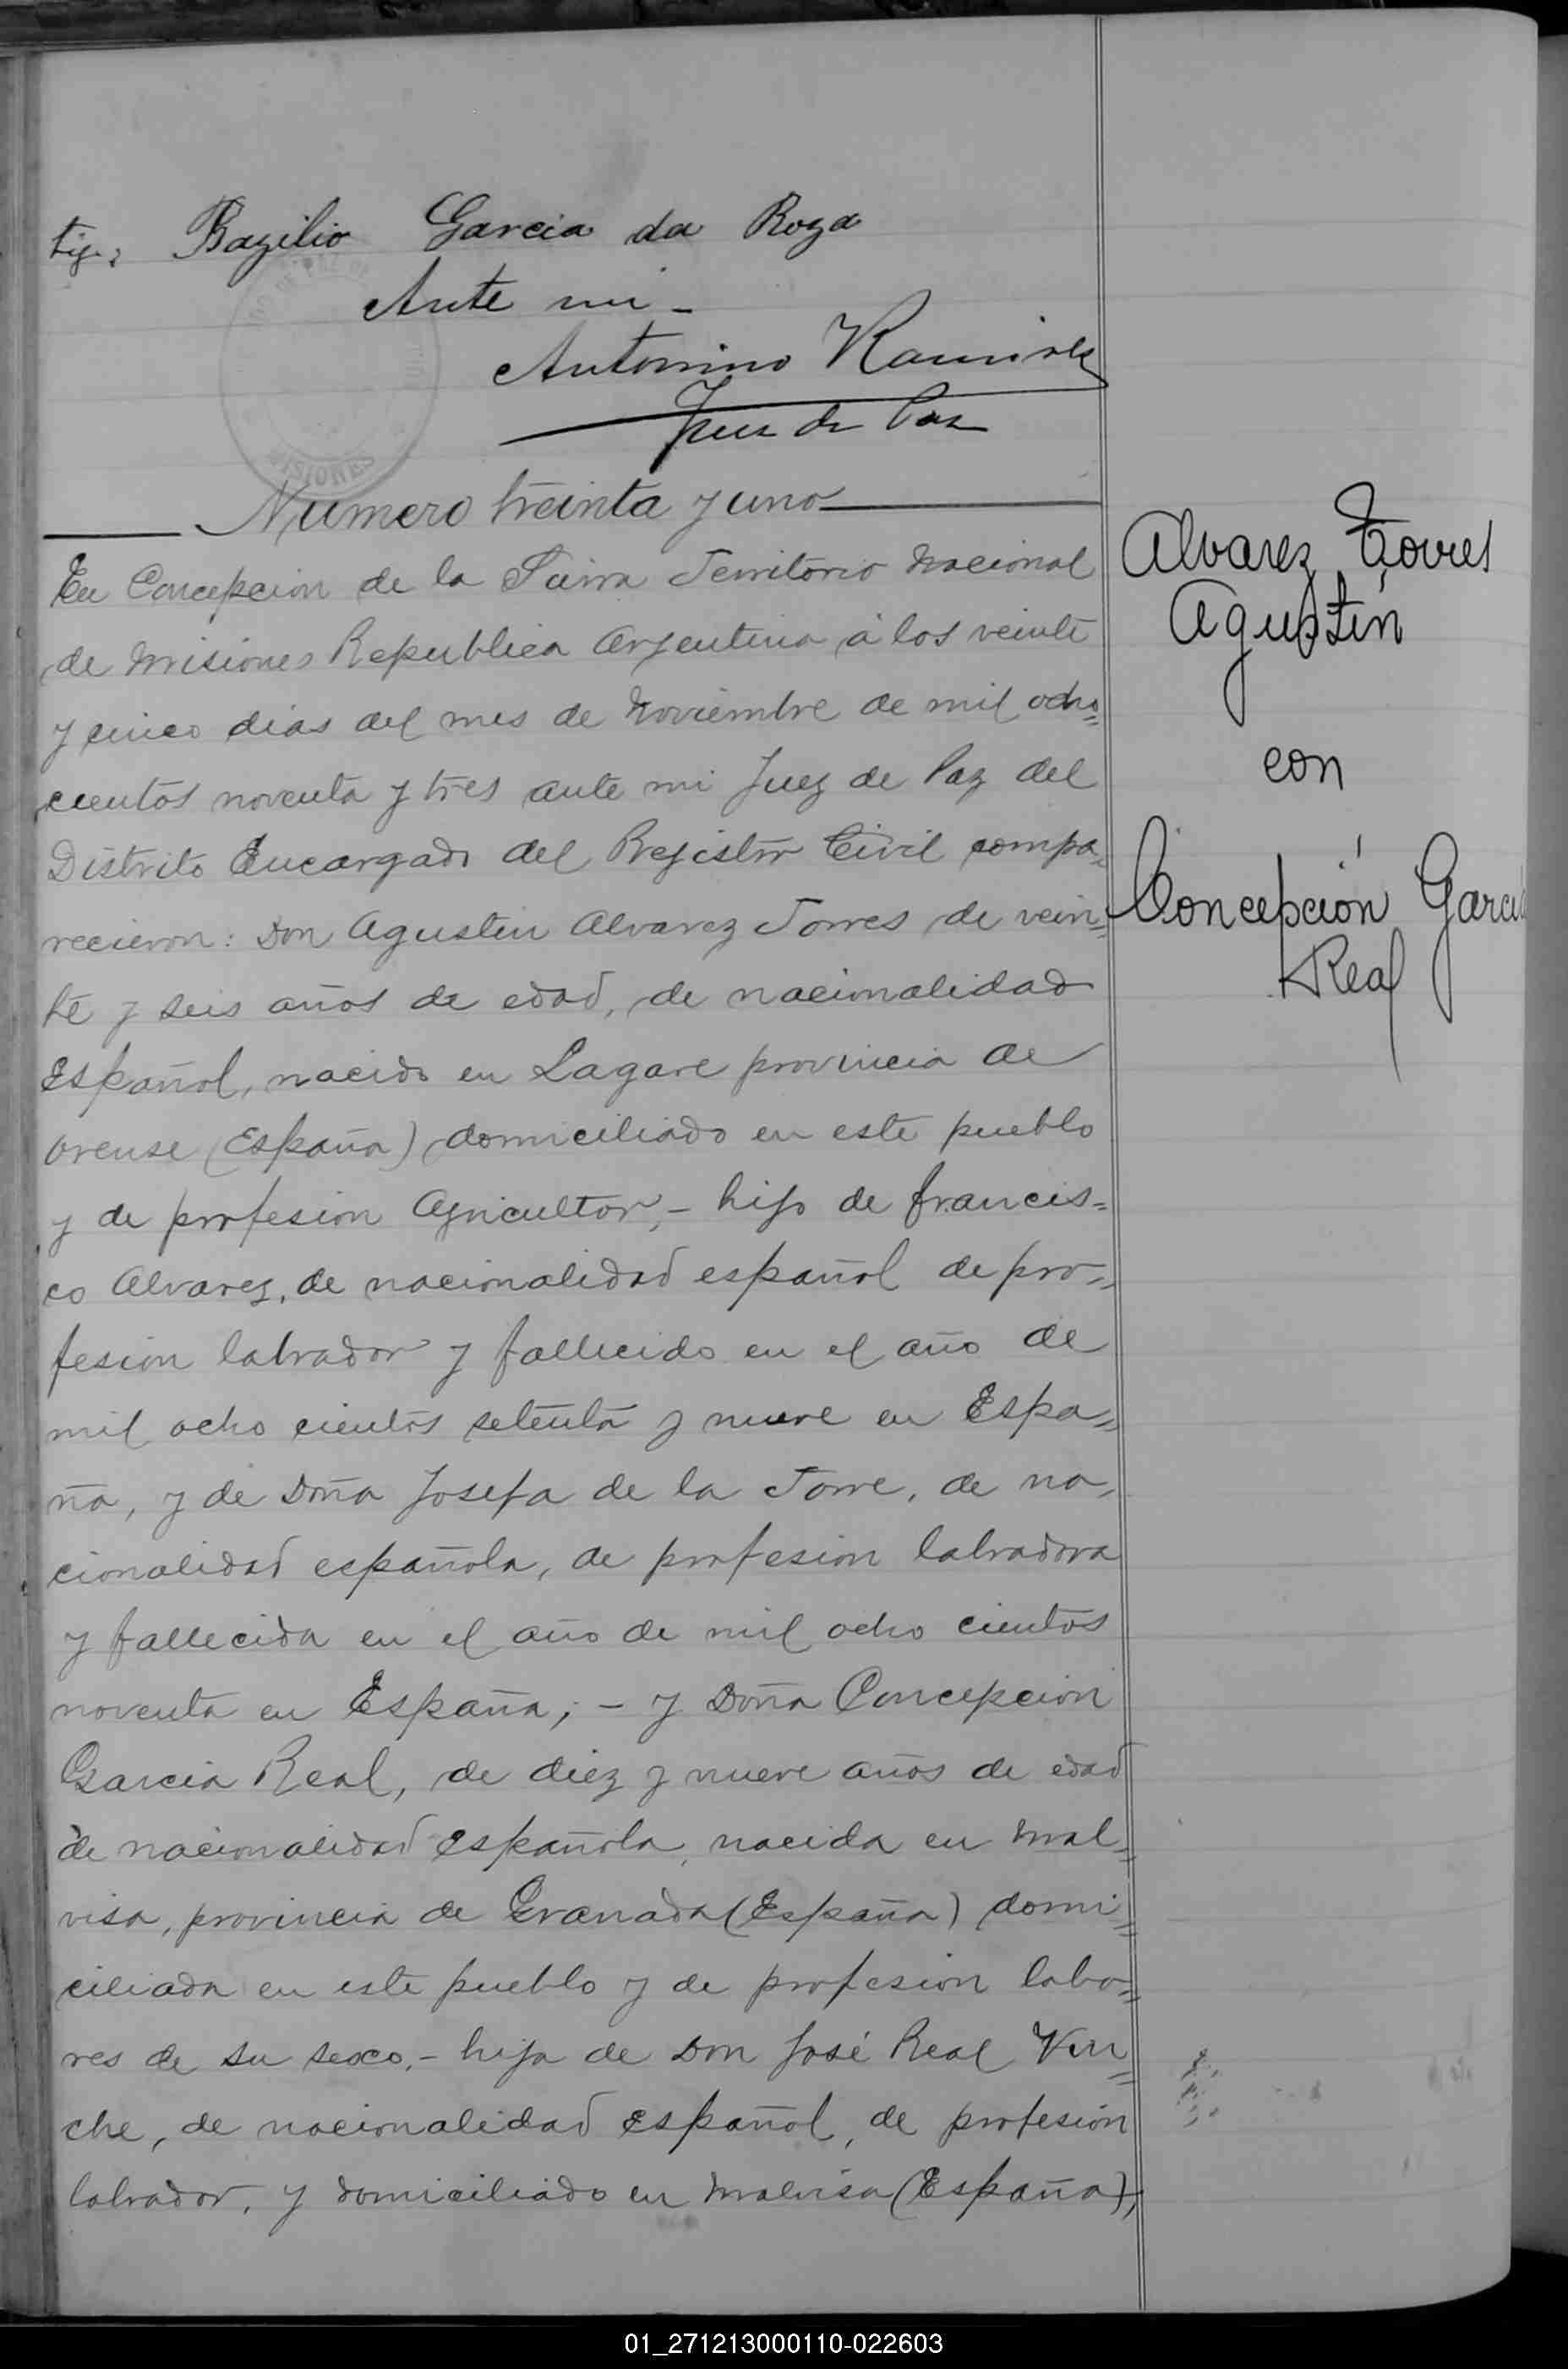 tig.: Bazilio Garcia da Roza
Ante mi -
Antonino Ramirez
Juez de Paz
MISIONES
Numero treinta y uno
En Concepcion de la Sierra Territorio Nacional
de Misiones Republica Argentina á los veinte
y cinco dias del mes de Noviembre de mil ocho=
cientos noventa y tres ante mi Juez de Paz del
Distrito Encargado del Registro Civil compa=
recieron: Don Agustin Alvarez Torres de vein=
te y seis años de edad, de nacionalidad
Español, nacido en Lagare provincia de
Orense (España) domiciliado en este pueblo
y de profesion Agricultor, - hijo de Francis=
co Alvarez, de nacionalidad español de pro=
fesion labrador y fallecido en el año de
mil ocho cientos setenta y nueve en Espa=
ña, y de Doña Josefa de la Torre, de na=
cionalidad española, de profesion labradora
y fallecida en el año de mil ocho cientos
noventa en España; - y Doña Concepcion
Garcia Real, de diez y nueve años de edad
de nacionalidad española, nacida en Mal=
visa, provincia de Granada (España) domi=
ciliada en este pueblo y de profesion labo=
res de su sexo. - hija de Don José Real Vin=
che, de nacionalidad español, de profesión
labrador, y domiciliado en Malvisa (España),
Alvarez Torres
Agustín
con
Concepción García
Real
01_271213000110-022603